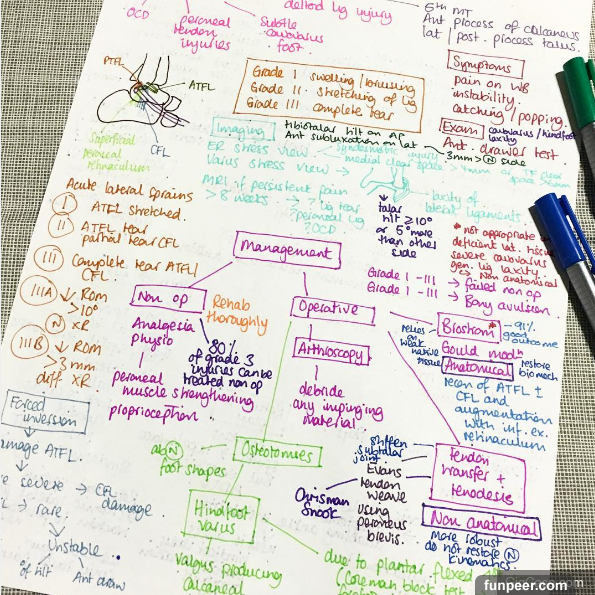 OCD
peroneal
tendon
injuries
Subtle
cavovarus
foot.
deltoid lig injury
5th MT
Ant process of calcaneus
lat / post. process talus.
PTFL
ATFL
CFL
Superficial
peroneal
retinaculum
Grade I swelling / bruising
Grade II stretching of lig
Grade III complete tear
Symptoms
pain on WB
instability.
catching / popping.
Exam cavovarus / hindfoot
laxity
Ant. drawer test
> 3mm > N side
Imaging
tibiotalar tilt on AP
Ant subluxation on lat
ER stress view → Syndesmotic injury
medial clear space > 4mm or TF clear
space > 6mm
Varus stress view →
laxity of
lateral ligaments
MRI if persistent pain
> 8 weeks. → ? lig tear
? peroneal lig
? OCD
talar
tilt ≥ 10°
or 5° more
than other
side
* not appropriate in
deficient lat. tissue
severe cavovarus
gen. lig laxity.
↳ Non anatomical
Acute lateral sprains
I ATFL stretched.
II ATFL tear
partial tear CFL
III Complete tear ATFL /
CFL.
IIIA ↓ ROM
>10°
N XR
IIIB ↓ ROM
> 3mm
diff XR
Management
Non op
Rehab
thoroughly
Analgesia
physio
80%
of grade 3
injuries can be
treated non op
peroneal
muscle strengthening
proprioception.
Operative
Grade I - III → failed non op
Grade I - III → Bony avulsion.
Arthroscopy
debride
any impinging
material.
Brostrom * - 91%
good
outcome
relies
on
weak
native
tissue
Gould modn
Anatomical restore
biomech
recon of ATFL ±
CFL and
augmentation
with inf. ex.
retinaculum
Forced
inversion
damage ATFL.
severe → CFL
damage
→ rare.
Unstable
of tilt
Ant draw
Osteotomies
abN
foot shapes
Hindfoot
varus
valgus producing
calcaneal
stiffen
subtalar
joint
Evans
tendon
weave
using
peroneus
brevis.
Chrisman
Snook
tendon
transfer +
tenodesis
Non anatomical
more robust
do not restore N
kinematics.
due to plantar flexed
(Coleman block test
funpeer.com